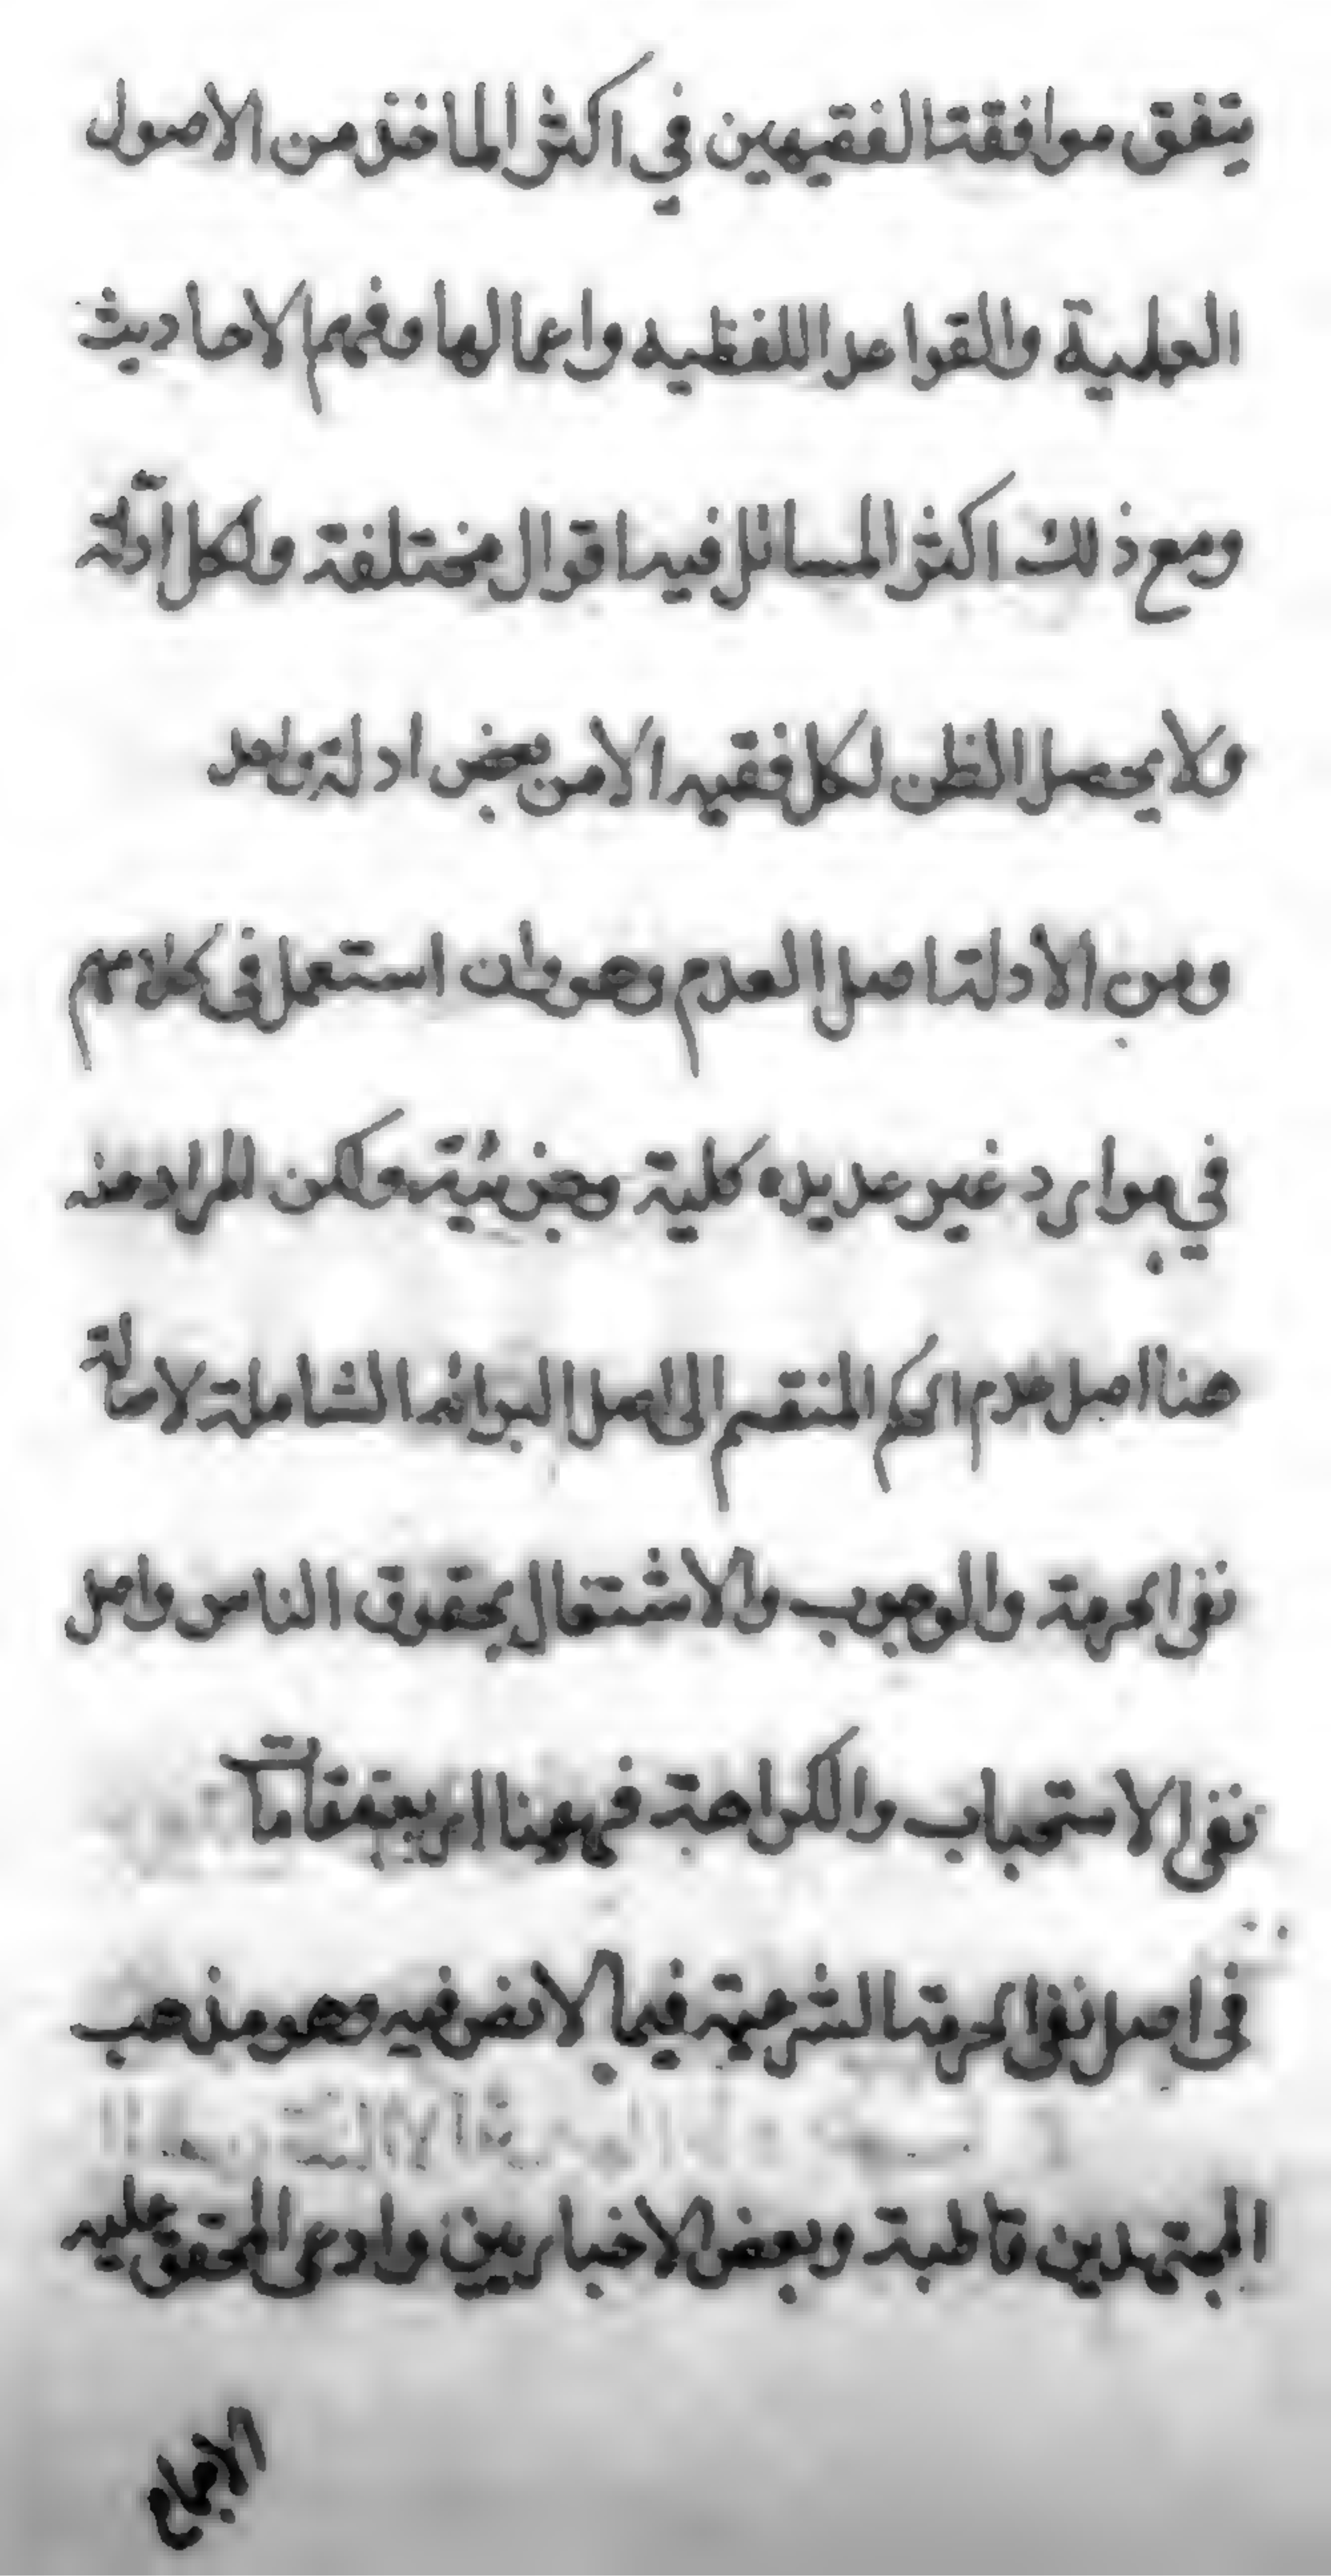 يتفق موافقة الفقيهين في اكثر الماخذ من الاصول
العلمية والقواعد اللفظيه واعمالها وفهم الاحاديث
ومع ذلك اكثر المسائل فيها اقوال مختلفة ولكل ادلّة
ولا يحصل الظن لكل فقيه الا من بعض ادلة واحد
ومن الأدلة اصل العدم وهو وان استعمل في كلامهم
في موارد غير عديده كلية وجزئيّة لكن المراد منه
هنا اصل عدم الحكم المنقسم الى اصل البرائة الشاملة لاصالة
نفي الحرمة والوجوب والاشتغال بحقوق الناس واصل
نفي الاستحباب والكراهة فهيهنا اربع مقامات
في اصل نفي الحرمة الشرعية فيما لا نص فيه وهو مذهب
المجتهدين قاطبة وبعض الاخباريين وادعى المحقق عليه
الاجماع